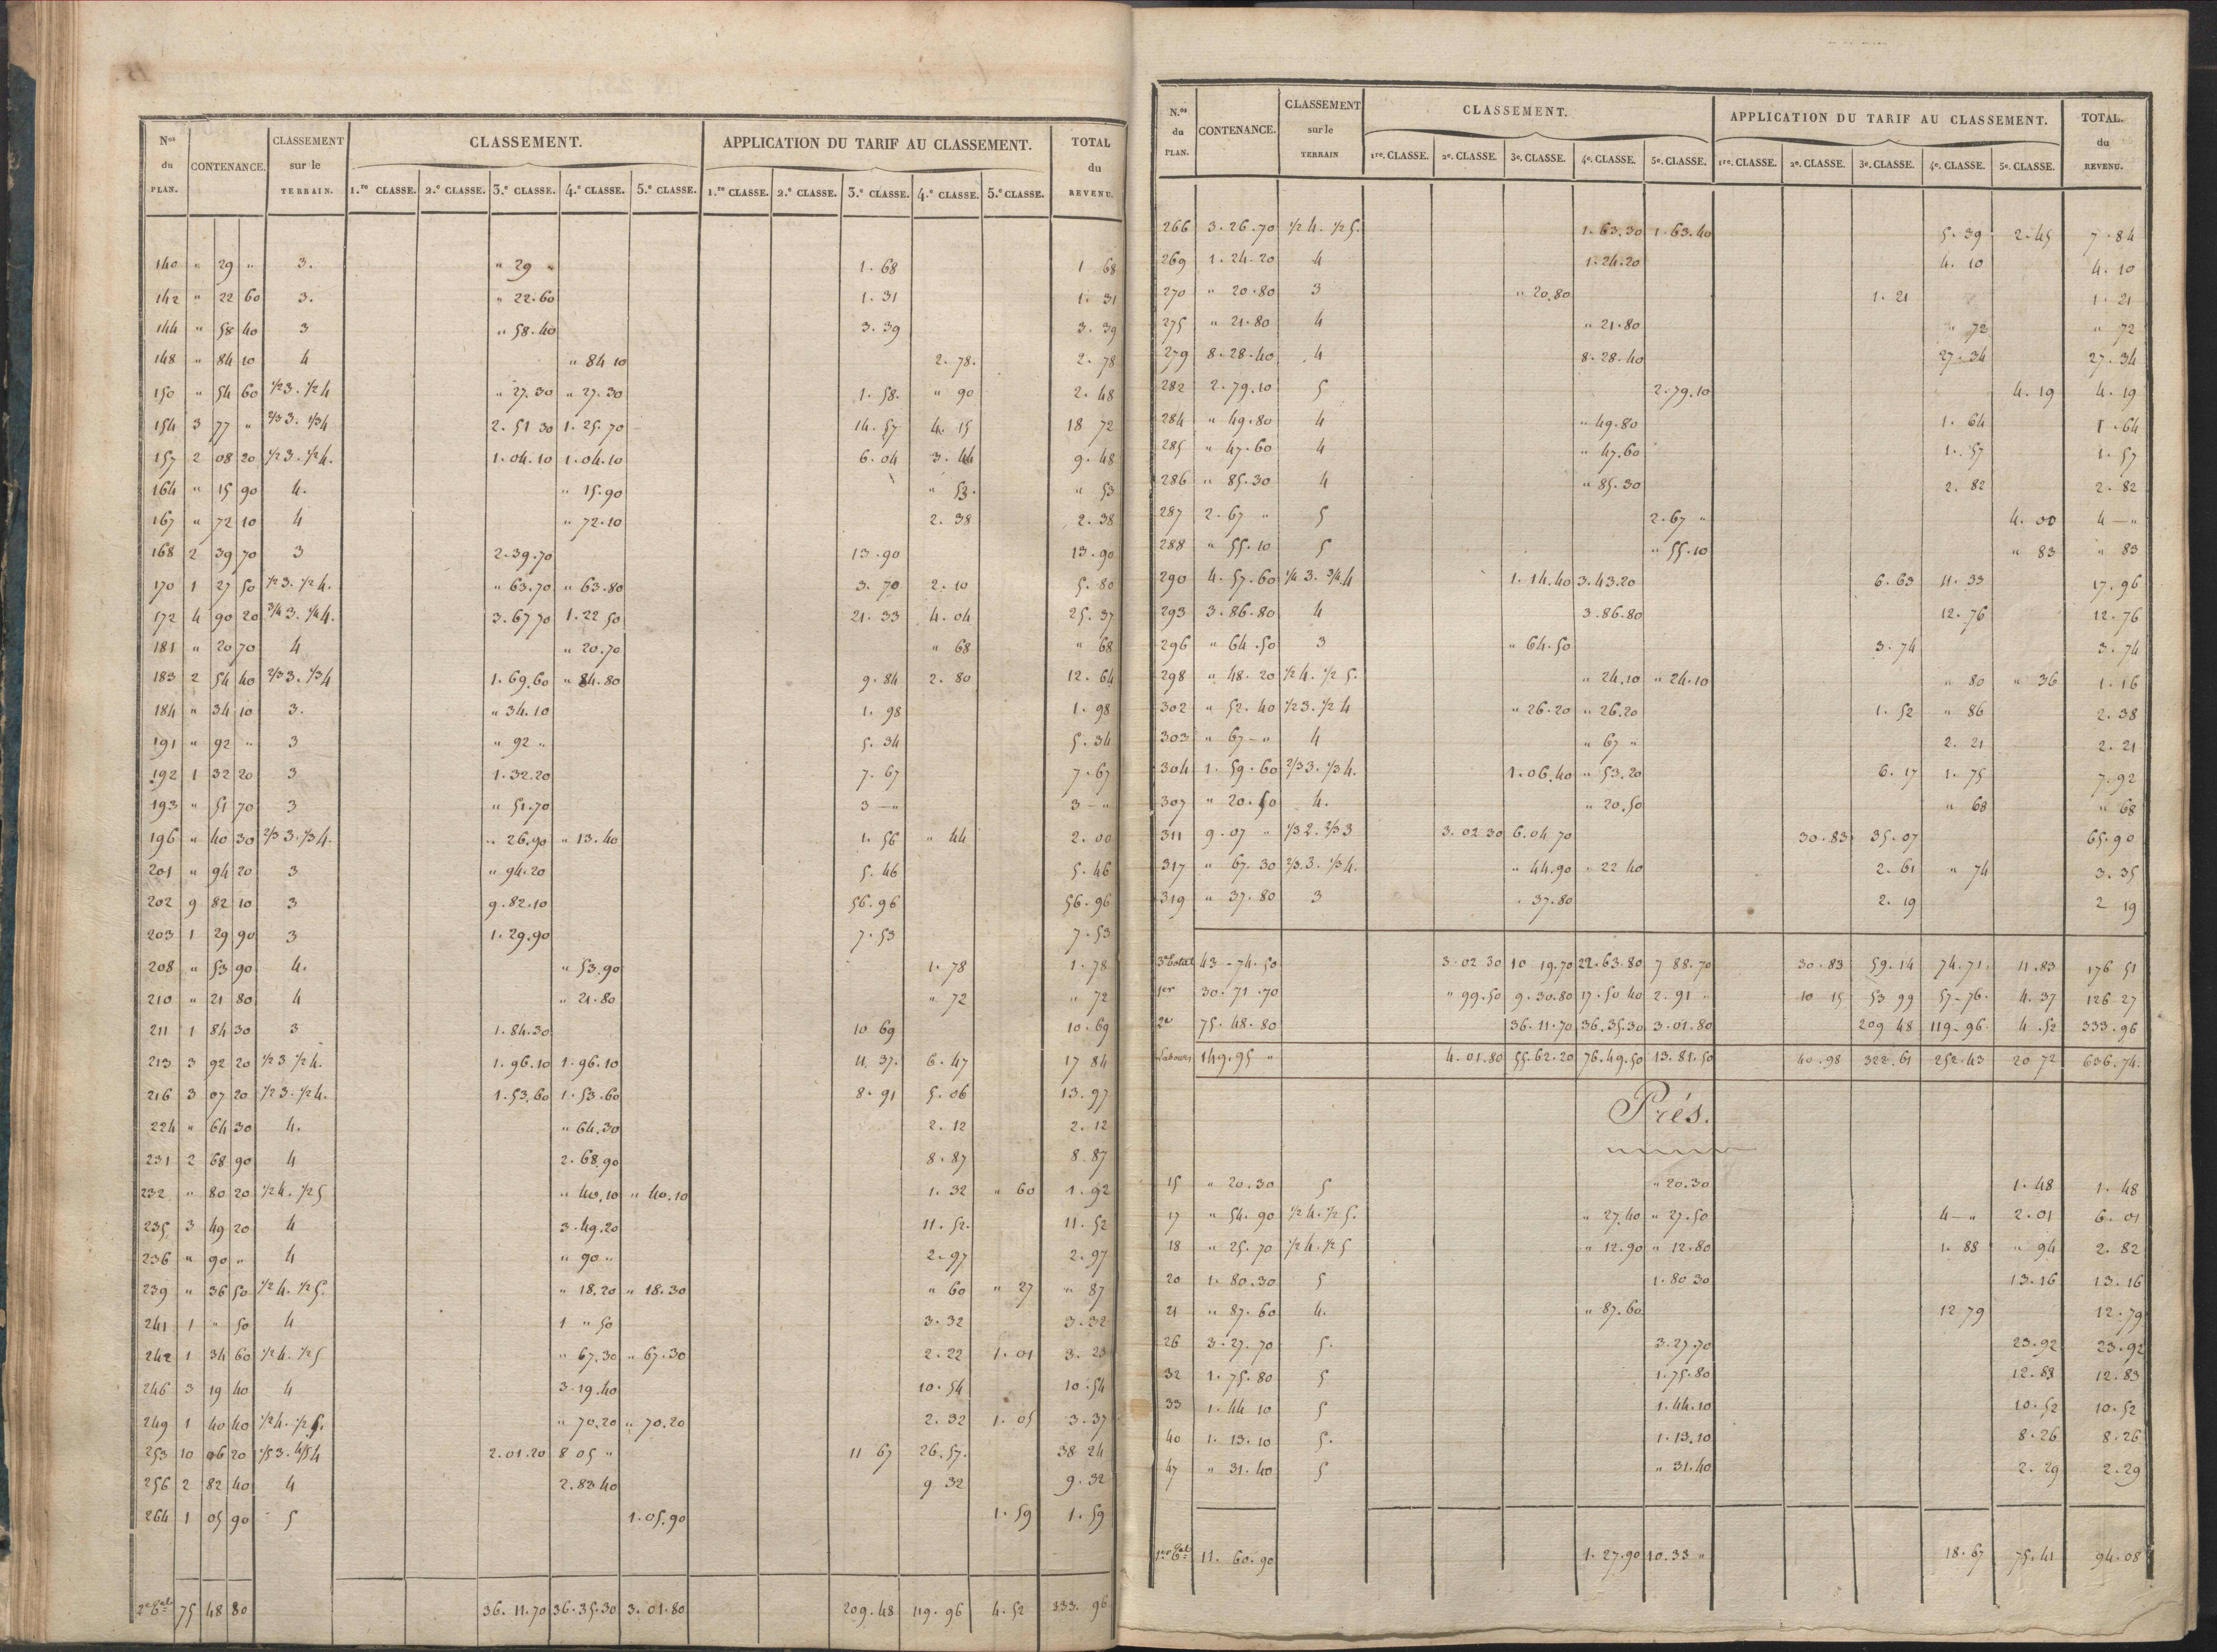 Nos du PLAN. CONTENANCE. CLASSEMENT sur le TERRAIN. CLASSEMENT. APPLICATION DU TARIF AU CLASSEMENT. TOTAL du REVENU.
1.re CLASSE. 2.e CLASSE. 3.e CLASSE. 4.e CLASSE. 5.e CLASSE. 1.re CLASSE. 2.e CLASSE. 3.e CLASSE. 4.e CLASSE. 5.e CLASSE.
140 " 29 " 3. " 29 " 1. 68 1 68
142 " 22 60 3. " 22.60 1. 31 1. 31
144 " 58 40 3 " 58.40 3. 39 3. 39
148 " 84 10 4 " 84 10 2. 78. 2. 78
150 " 54 60 1/2 3. 1/2 4 " 27.30 " 27.30 1. 58. " 90 2. 48
154 3 77 " 2/3 3. 1/3 4 2. 51 30 1. 25. 70 14. 57 4. 15 18 72
157 2 08 20 1/2 3. 1/2 4. 1.04.10 1.04.10 6. 04 3. 44 9. 48
164 " 15 90 4. " 15.90 " 53. " 53
167 " 72 10 4 " 72.10 2. 38 2. 38
168 2 39 70 3 2.39.70 13.90 13.90
170 1 27 50 1/2 3. 1/2 4. " 63.70 " 63.80 3. 70 2. 10 5. 80
172 4 90 20 3/4 3. 1/4 4. 3.67 70 1.22 50 21. 33 4. 04 25. 37
181 " 20 70 4 " 20.70 " 68 " 68
183 2 54 40 2/3 3. 1/3 4 1.69.60 " 84.80 9. 84 2. 80 12. 64
184 " 34 10 3. " 34.10 1. 98 1. 98
191 " 92 " 3 " 92 " 5. 34 5. 34
192 1 32 20 3 1.32.20 7. 67 7.67
193 " 51 70 3 " 51.70 3 — " 3 — "
196 " 40 30 2/3 3. 1/3 4. " 26.90 " 13.40 1. 56 " 44 2. 00
201 " 94 20 3 " 94.20 5. 46 5. 46
202 9 82 10 3 9.82.10 56.96 56.96
203 1 29 90 3 1.29.90 7. 53 7. 53
208 " 53 90 4. " 53.90 1. 78 1. 78
210 " 21 80 4 " 21.80 " 72 " 72
211 1 84 30 3 1.84.30 10 69 10.69
213 3 92 20 1/2 3 1/2 4. 1.96.10 1.96.10 11. 37. 6. 47 17 84
216 3 07 20 1/2 3. 1/2 4. 1.53.60 1.53.60 8. 91 5. 06 13. 97
224 " 64 30 4. " 64.30 2. 12 2. 12
231 2 68 90 4 2.68.90 8.87 8.87
232 " 80 20 1/2 4. 1/2 5 " 40.10 " 40.10 1. 32 " 60 1. 92
235 3 49 20 4 3.49.20 11. 52. 11. 52
236 " 90 " 4 " 90 " 2.97 2.97
239 " 36 50 1/2 4. 1/2 5. " 18.20 " 18.30 " 60 " 27 " 87
241 1 " 50 4 1 " 50 3.32 3.32
242 1 34 60 1/2 4. 1/2 5 " 67.30 " 67.30 2. 22 1. 01 3. 23
246 3 19 40 4 3.19.40 10. 54 10.54
249 1 40 40 1/2 4. 1/2 5. " 70.20 " 70.20 2. 32 1. 05 3.37
253 10 06 20 1/5 3. 4/5 4 2.01.20 8 05 " 11 67 26.57. 38 24
256 2 82 40 4 2.82 40 9 32 9.32
264 1 05 90 5 1.05.90 1. 59 1. 59
2e Tal 75 48 80 36.11.70 36.35.30 3.01.80 209.48 119.96 4.52 333. 96
N.os du PLAN. CONTENANCE. CLASSEMENT sur le TERRAIN CLASSEMENT. APPLICATION DU TARIF AU CLASSEMENT. TOTAL. du REVENU.
1re. CLASSE. 2e. CLASSE. 3e. CLASSE. 4e. CLASSE. 5e. CLASSE. 1re. CLASSE. 2e. CLASSE. 3e. CLASSE. 4e. CLASSE. 5e. CLASSE.
266 3.26.70 1/2 4. 1/2 5. 1.63.30 1.63.40 5.39 2.45 7.84
269 1.24.20 4 1.24.20 4. 10 4. 10
270 " 20.80 3 " 20.80 1. 21 1. 21
275 " 21.80 4 " 21.80 " 72 " 72
279 8.28.40 4 8.28.40 27.34 27.34
282 2.79.10 5 2.79.10 4. 19 4. 19
284 " 49.80 4 " 49.80 1. 64 1.64
285 " 47.60 4 " 47.60 1. 57 1. 57
286 " 85.30 4 " 85.30 2. 82 2. 82
287 2.67 " 5 2.67 " 4. 00 4 — "
288 " 55.10 5 " 55.10 " 83 " 83
290 4.57.60 1/4 3. 3/4 4 1.14.40 3.43.20 6.63 11.33 17.96
293 3.86.80 4 3.86.80 12.76 12.76
296 " 64.50 3 " 64.50 3. 74 3. 74
298 " 48. 20 1/2 4. 1/2 5. " 24.10 " 24.10 " 80 " 36 1.16
302 " 52. 40 1/2 3. 1/2 4 " 26.20 " 26.20 1. 52 " 86 2. 38
303 " 67 — " 4 " 67 " 2. 21 2. 21
304 1. 59.60 2/3 3. 1/3 4. 1.06.40 " 53.20 6. 17 1. 75 7.92
307 " 20.50 4. " 20.50 " 68 " 68
311 9.07 " 1/3 2. 2/3 3 3. 02 30 6.04 70 30.83 35.07 65.90
317 " 67. 30 2/3 3. 1/3 4. " 44.90 " 22 40 2.61 " 74 3.35
319 " 37.80 3 " 37.80 2. 19 2 19
3e total 43.74.50 3.02 30 10 19.70 22.63.80 7 88.70 30.83 59.14 74.71. 11.83 176 51
1er 30.71.70 " 99.50 9.30.80 17.50 40 2.91 " 10 15 53 99 57.76. 4.37 126 27
2e 75.48.80 36.11.70 36.35.30 3.01.80 209 48 119.96 4.52 333.96
Labours 149.95 " 4.01.80 55.62.20 76.49.50 13.81.50 40.98 322.61 252.43 20 72 636.74.
Prés.
15 " 20.30 5 " 20.30 1. 48 1. 48
17 " 54. 90 1/2 4. 1/2 5. " 27.40 " 27.50 4 — " 2.01 6. 01
18 " 25. 70 1/2 4. 1/2 5 " 12.90 " 12.80 1. 88 " 94 2. 82
20 1. 80.30 5 1.80 30 13.16 13.16
21 " 87.60 4. " 87.60 12 79 12.79
26 3.27.70 5. 3.27.70 23.92 23.92
32 1. 75.80 5 1.75.80 12.83 12.83
33 1.44 10 5 1.44.10 10.52 10.52
40 1. 13. 10 5. 1.13.10 8.26 8.26
47 " 31.40 5 " 31.40 2. 29 2.29
1er Tal 11. 60.90 1. 27.90 10.33 " 18.67 75.41 94.08